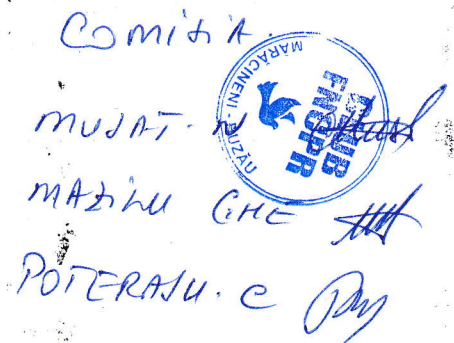 COMISIA.
MUSAT. N
MAZILU GHE
POTERASU. C
MĂRĂCINENI - BUZĂU
FNCPR